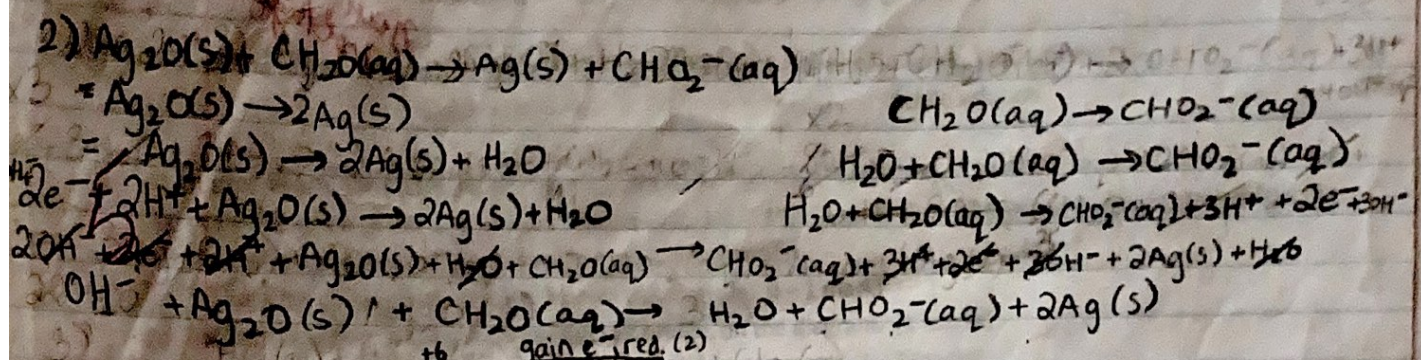 2) Ag₂O(s) + CH₂O(aq) → Ag(s) + CHO₂⁻(aq)
= Ag₂O(s) → 2Ag(s) CH₂O(aq) → CHO₂⁻(aq)
= Ag₂O(s) → 2Ag(s) + H₂O H₂O + CH₂O(aq) → CHO₂⁻(aq)
2e⁻ + 2H⁺ + Ag₂O(s) → 2Ag(s) + H₂O H₂O + CH₂O(aq) → CHO₂⁻(aq) + 3H⁺ + 2e⁻ + 3OH⁻
2OH⁻ + 2e⁻ + 2H⁺ + Ag₂O(s) + H₂O + CH₂O(aq) → CHO₂⁻(aq) + 3H⁺ + 2e⁻ + 3OH⁻ + 2Ag(s) + H₂O
OH⁻ + Ag₂O(s) + CH₂O(aq) → H₂O + CHO₂⁻(aq) + 2Ag(s)
+6 gain e⁻, red. (2)